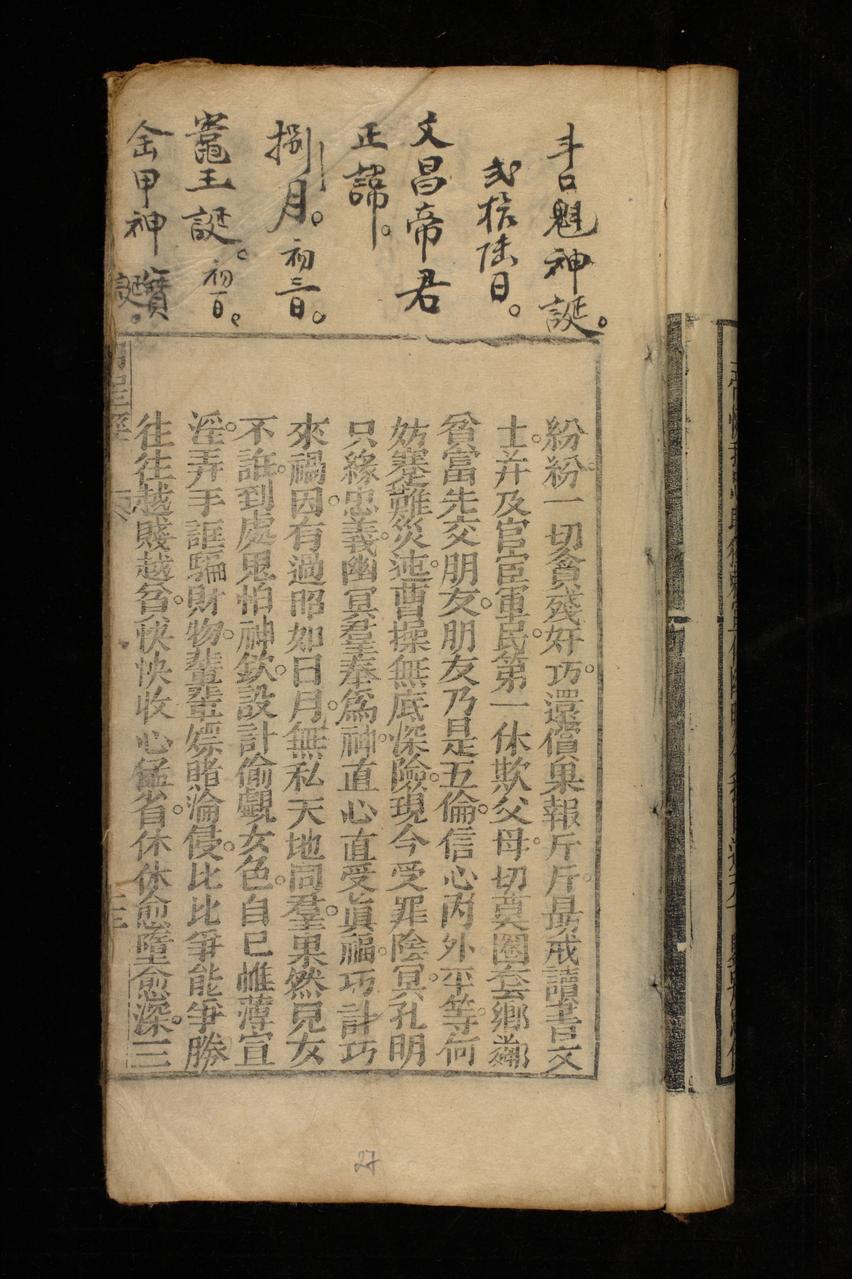 斗口魁神誕。
弍拾陸日。
文昌帝君
正諱。
捌月。初三日。
竈王誕。初日。
金甲神寶誕。
紛紛一切貪殘奸巧。還償果報斤斤。最戒讀書文
士。并及官宦軍民。第一休欺父母。切莫圈套鄉鄰
貧富先交朋友。朋友乃是五倫。信心內外平等。何
妨蹇難災迍。曹操無底深險。現今受罪陰冥。孔明
只緣忠義。幽冥羣奉為神。直心直受眞福。巧計巧
來禍因。有過昭如日月。無私天地同羣。果然兒女
不誑。到處鬼怕神欽。設計偷觀女色。自己帷薄宣
淫。弄手誆騙財物。輩輩嫖賭淪侵。比比爭能爭勝
往往越賤越貧。怏怏收心猛省。休休愈墮愈深。三
27